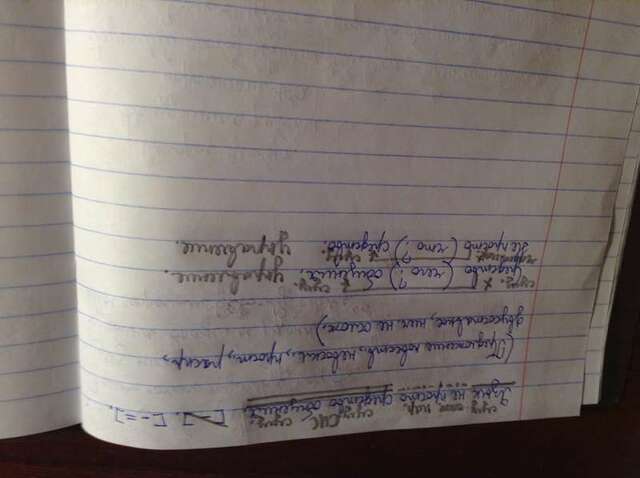 сущ. част. нар. сущ. СИС сущ.
Язык не просто средство общения. [-]. [- =].
(Предложение повеств., невоскл., прост., распр.,
двусоставное, нич. не ослож.)
сущ. х сущ.
Средство (чего?) общения. управление.
х сущ.
не просто (что?) средство. управление.